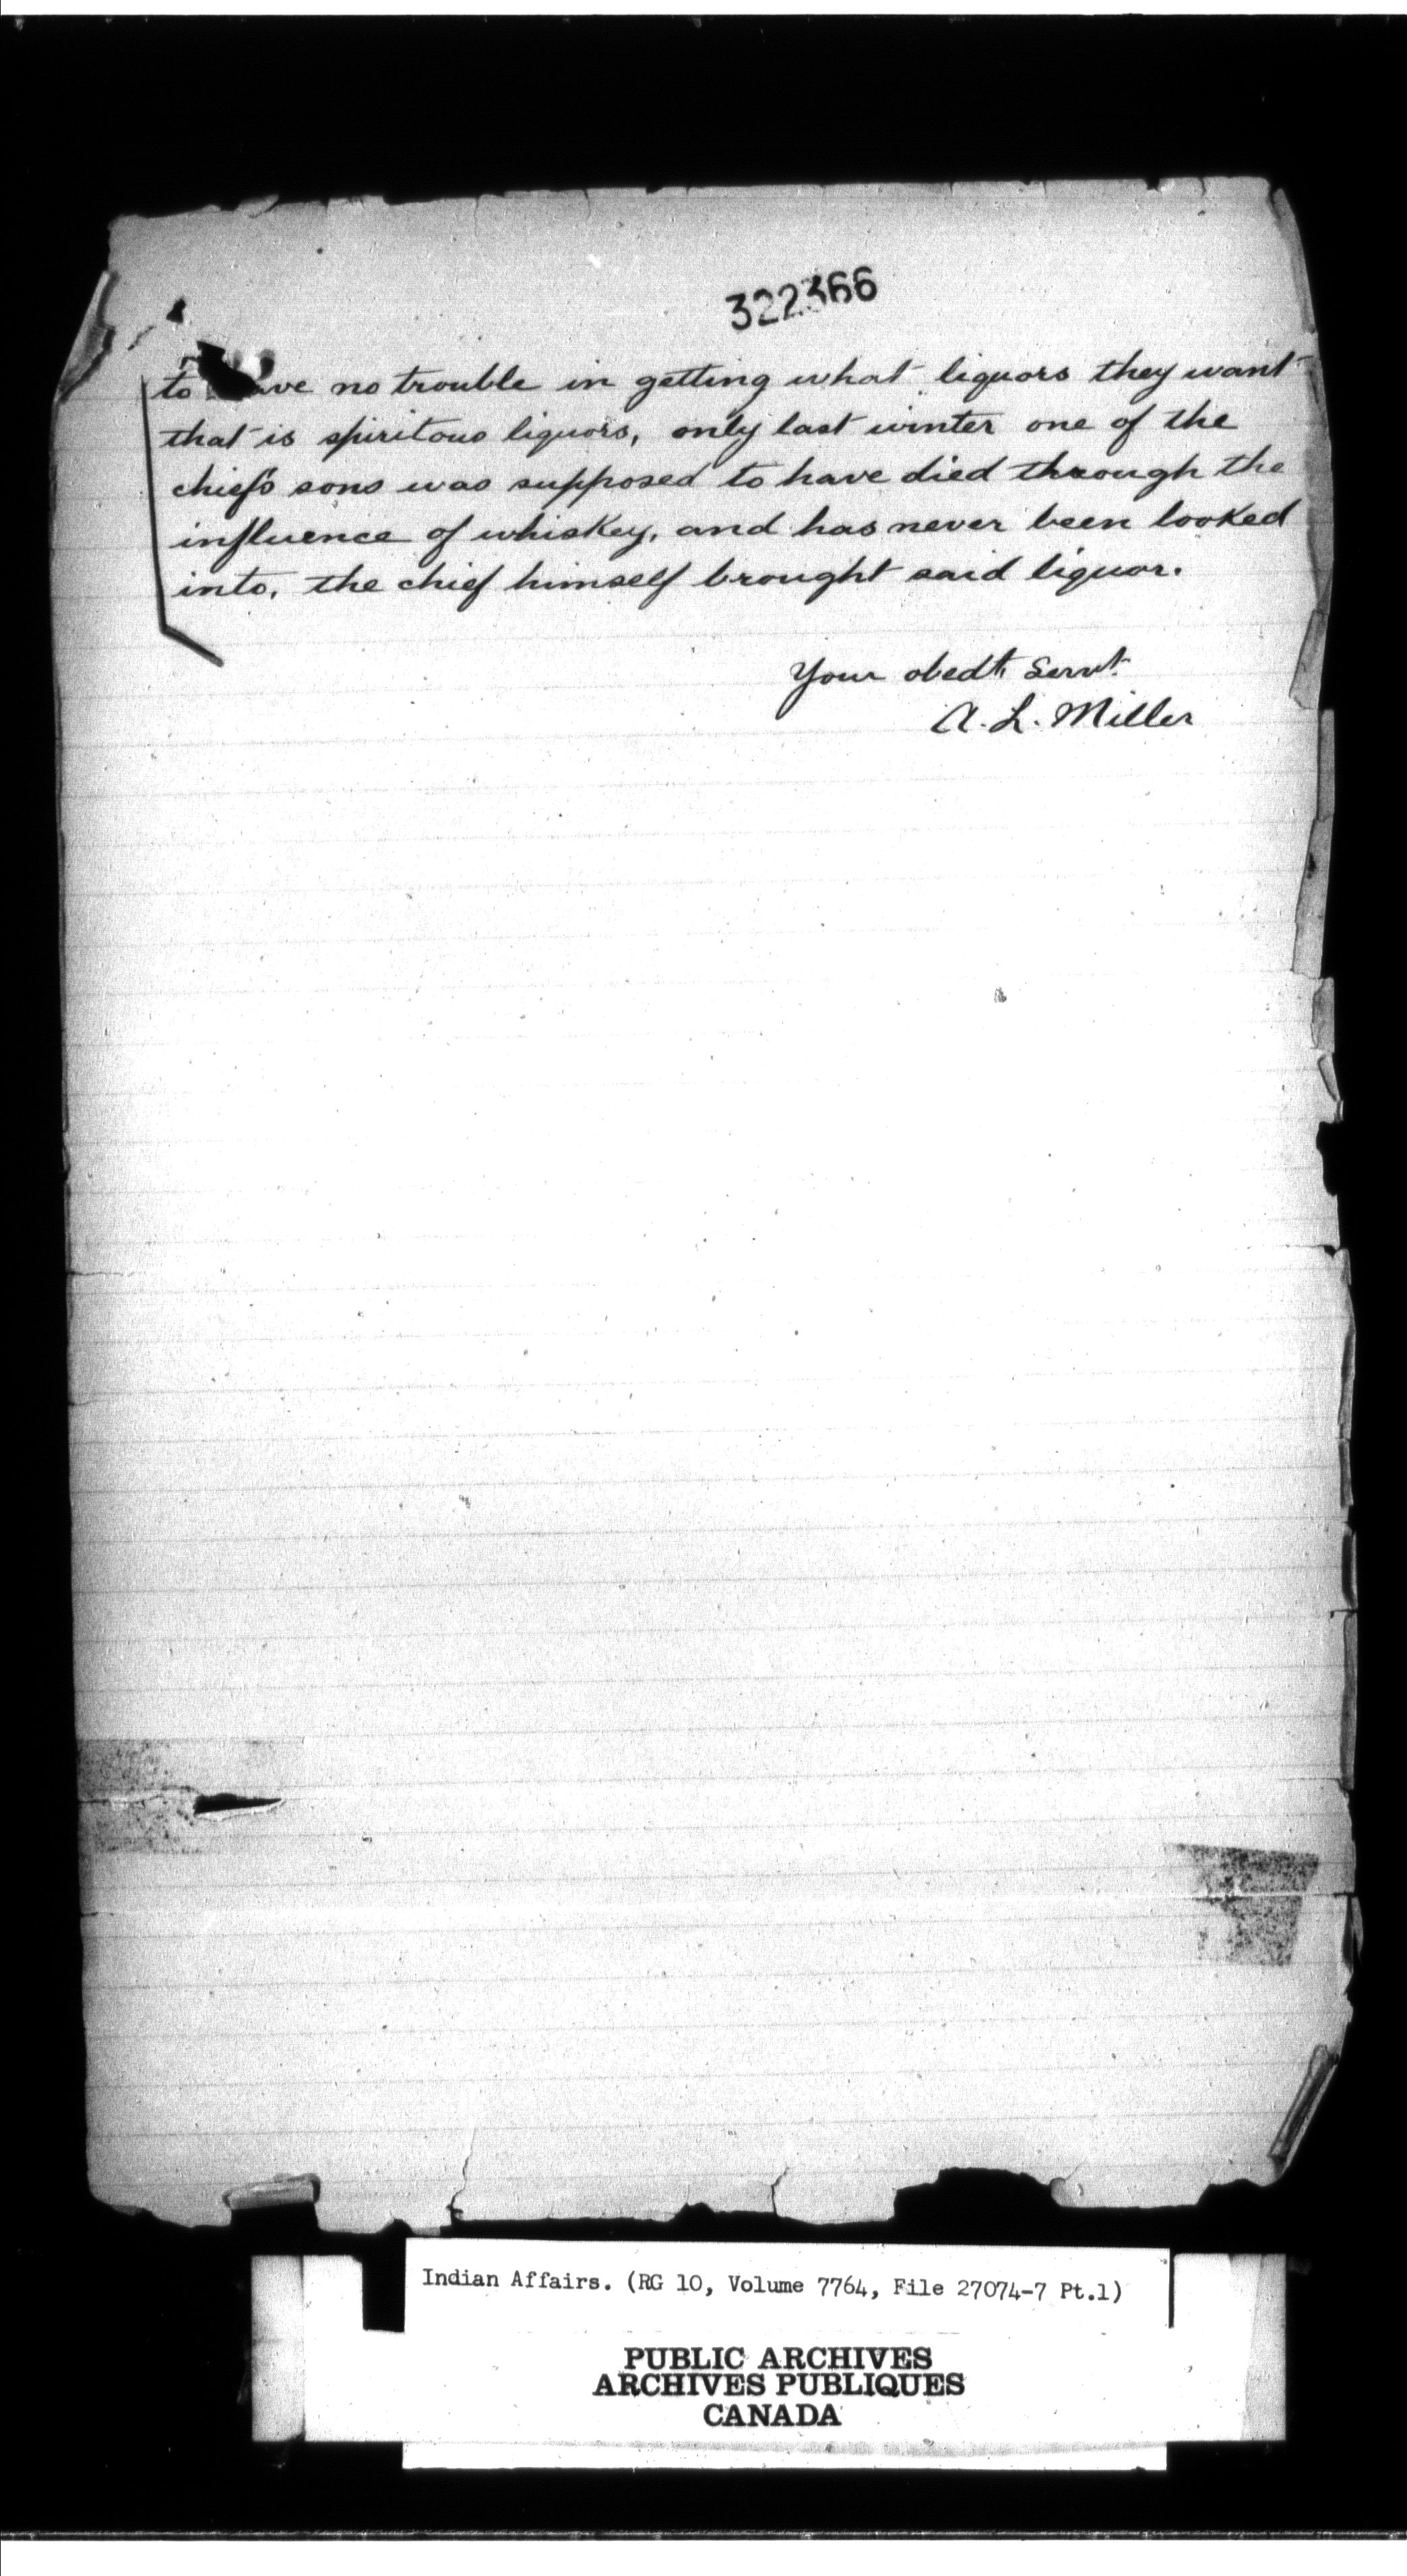 322366
to have no trouble in getting what liquors they want
that is spiritous liquors, only last winter one of the
chiefs sons was supposed to have died through the
influence of whiskey, and has never been looked
into, the chief himself brought said liquor.
Your obedt. Servt.
A. L. Miller
Indian Affairs. (RG 10, Volume 7764, File 27074-7 Pt.1)
PUBLIC ARCHIVES
ARCHIVES PUBLIQUES
CANADA